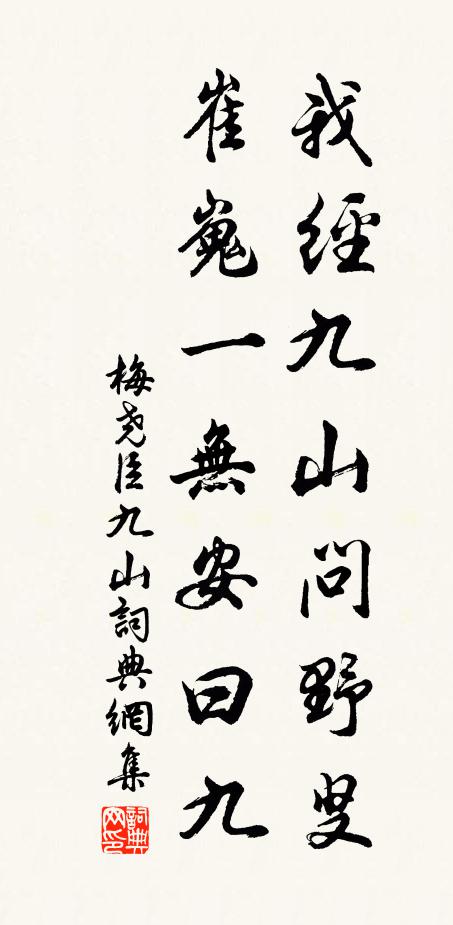 我經九山問野叟
崔嵬一無安曰九
梅堯臣九山詞典網集
詞典网印